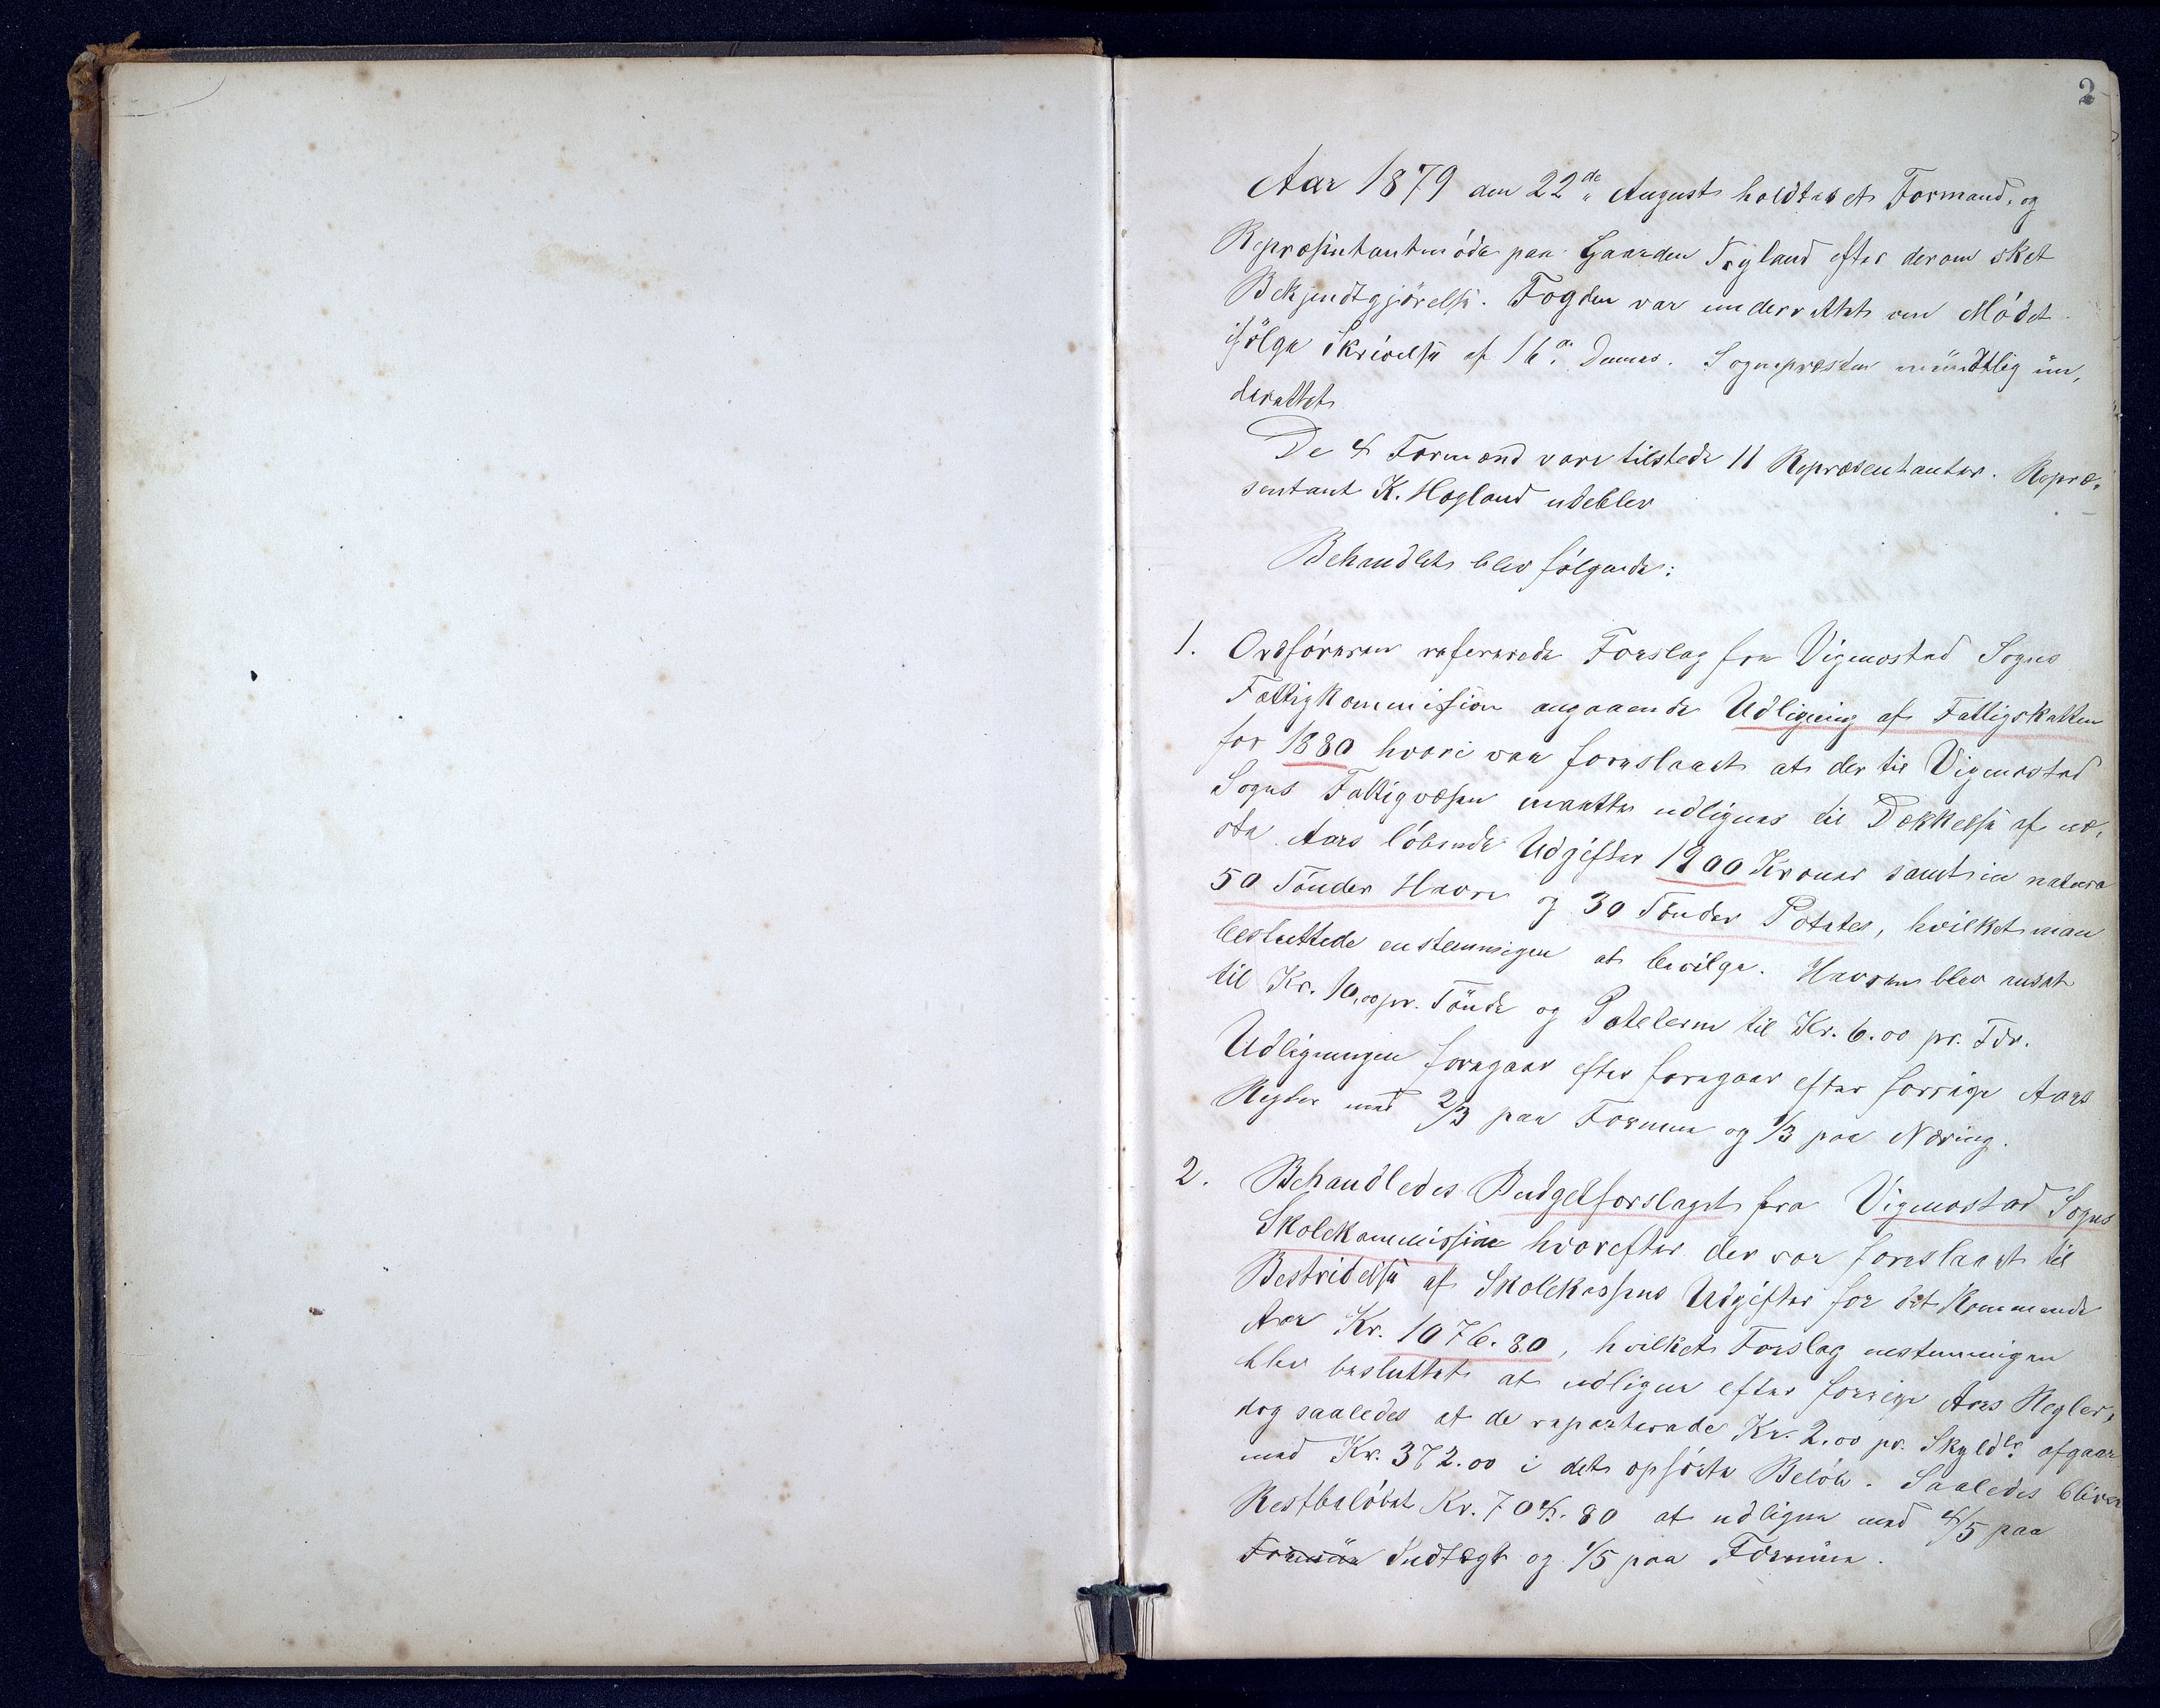 2
Aar 1879 den 22de August holdtes et Formand- og
Repræsentantmöde paa Gaarden Tryland efter derom sket
Bekjendtgjörelse. Fogden var underrettet om Mödet
ifölge Skrivelse af 16de Dennes. Sognepresten mündtlig ün-
derettet
De 4 Formænd vare tilstede 11 Repræsentanter. Repræ-
sentant K. Hægland udeblev
Behandlet blev fölgende:
1. Ordföreren refererede Forslag fra Vigmostad Sogns
Fattigkommission angaaende Udligning af Fattigskatten
for 1880 hvori var foreslaaet at der til Vigmostad
Sogns Fattigvæsen maatte udlignes til Dækkelse af næ-
ste Aars löbende Udgifter 1200 Kroner samt in natura
50 Tönder Havre og 30 Tönder Potetes, hvilket man
besluttede enstemmigen at bevilge. Havren blev ansat
til Kr. 10,00 pr. Tönde og Poteterne til Kr. 6.00 pr. Tdr.
Udligningen foregaar efter foregaar efter forrige Aars
Regler med 2/3 paa Formue og 1/3 paa Næring.
2. Behandledes Budgetforslaget fra Vigmostad Sogns
Skolekommission hvorefter der var foreslaaet til
Bestridelse af Skolekassens Udgifter for det kommende
Aar Kr. 1076.80, hvilket Forslag enstemmigen
blev besluttet at udligne efter forrige Aars Regler,
dog saaledes at de reparterede Kr. 2.00 pr. Skyldlr. afgaar
med Kr. 372.00 i det opförte Belöb. Saaledes bliver
Restbelöbet Kr. 704.80 at udligne med 4/5 paa
Formüe Indtægt og 1/5 paa Formüe.